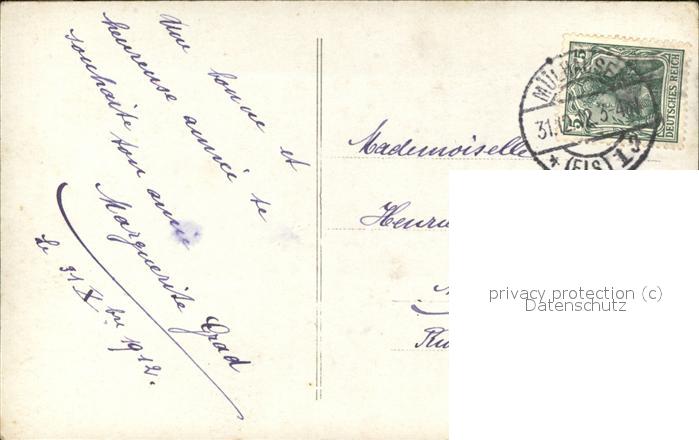 Une bonne et
heureuse année te
souhaite ton amie
Marguerite Grad
le 31 Xbre 1912.
Mademoiselle
MÜLHAUSEN
31.12.12 3-4N
* (ELS) 13
5 5
DEUTSCHES REICH
privacy protection (c)
Datenschutz